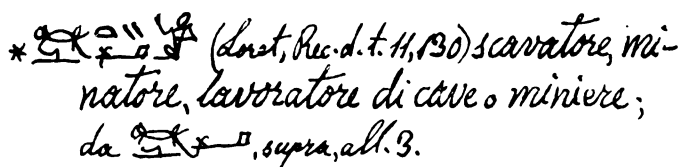 * (Loret, Rec. d. t. 11, 130) scavatore, mi-
natore, lavoratore di cave o miniere;
da , supra, all. 3.